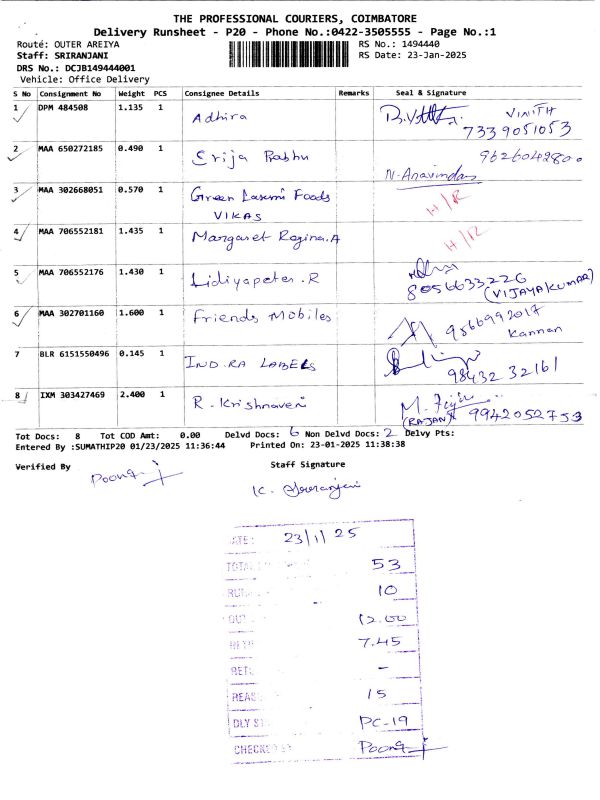 THE PROFESSIONAL COURIERS, COIMBATORE
Delivery Runsheet - P20 - Phone No.:0422-3505555 - Page No.:1
Route: OUTER AREIYA
RS No.: 1494440
Staff: SRIRANJANI
RS Date: 23-Jan-2025
DRS No.: DCJB149444001
Vehicle: Office Delivery
S No Consignment No Weight PCS Consignee Details Remarks Seal & Signature
1 DPM 484508 1.135 1 Adhira VINITH
7339051053
2 MAA 650272185 0.490 1 Srija Prabhu 9626042800
N. Aravindan
3 MAA 302668051 0.570 1 Green Laxmi Foods H/R
VIKAS
4 MAA 706552181 1.435 1 Margaret Regina.A H/R
5 MAA 706552176 1.430 1 Lidiyapeter.R 8056633226
(VIJAYAKUMAR)
6 MAA 302701160 1.600 1 Friends Mobiles 9566992017
Kannan
7 BLR 6151550496 0.145 1 IND.RA LABELS 98432 32161
8 IXM 303427469 2.400 1 R. Krishnaveni
(RAJAN) 9942052753
Tot Docs: 8 Tot COD Amt: 0.00 Delvd Docs: 6 Non Delvd Docs: 2 Delvy Pts:
Entered By :SUMATHIP20 01/23/2025 11:36:44 Printed On: 23-01-2025 11:38:38
Verified By Staff Signature
DATE: 23/1/25
53
10
12.00
7.45
-
15
PC-19
CHECKED BY